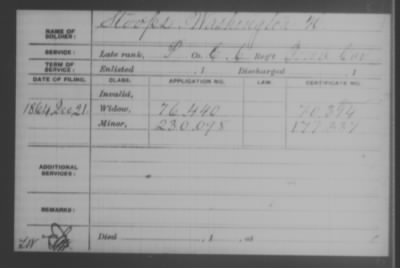 NAME OF SOLDIER: Stoops, Washington H
SERVICE: Late rank, P Co. C, 6 Reg't Cav
TERM OF SERVICE: Enlisted , 1 Discharged , 1
DATE OF FILING. CLASS. APPLICATION NO. LAW. CERTIFICATE NO.
Invalid,
1864, Dec 21. Widow, 76.440 70.394
Minor, 230.098 177.337
ADDITIONAL SERVICES:
REMARKS:
Died , 1 , at